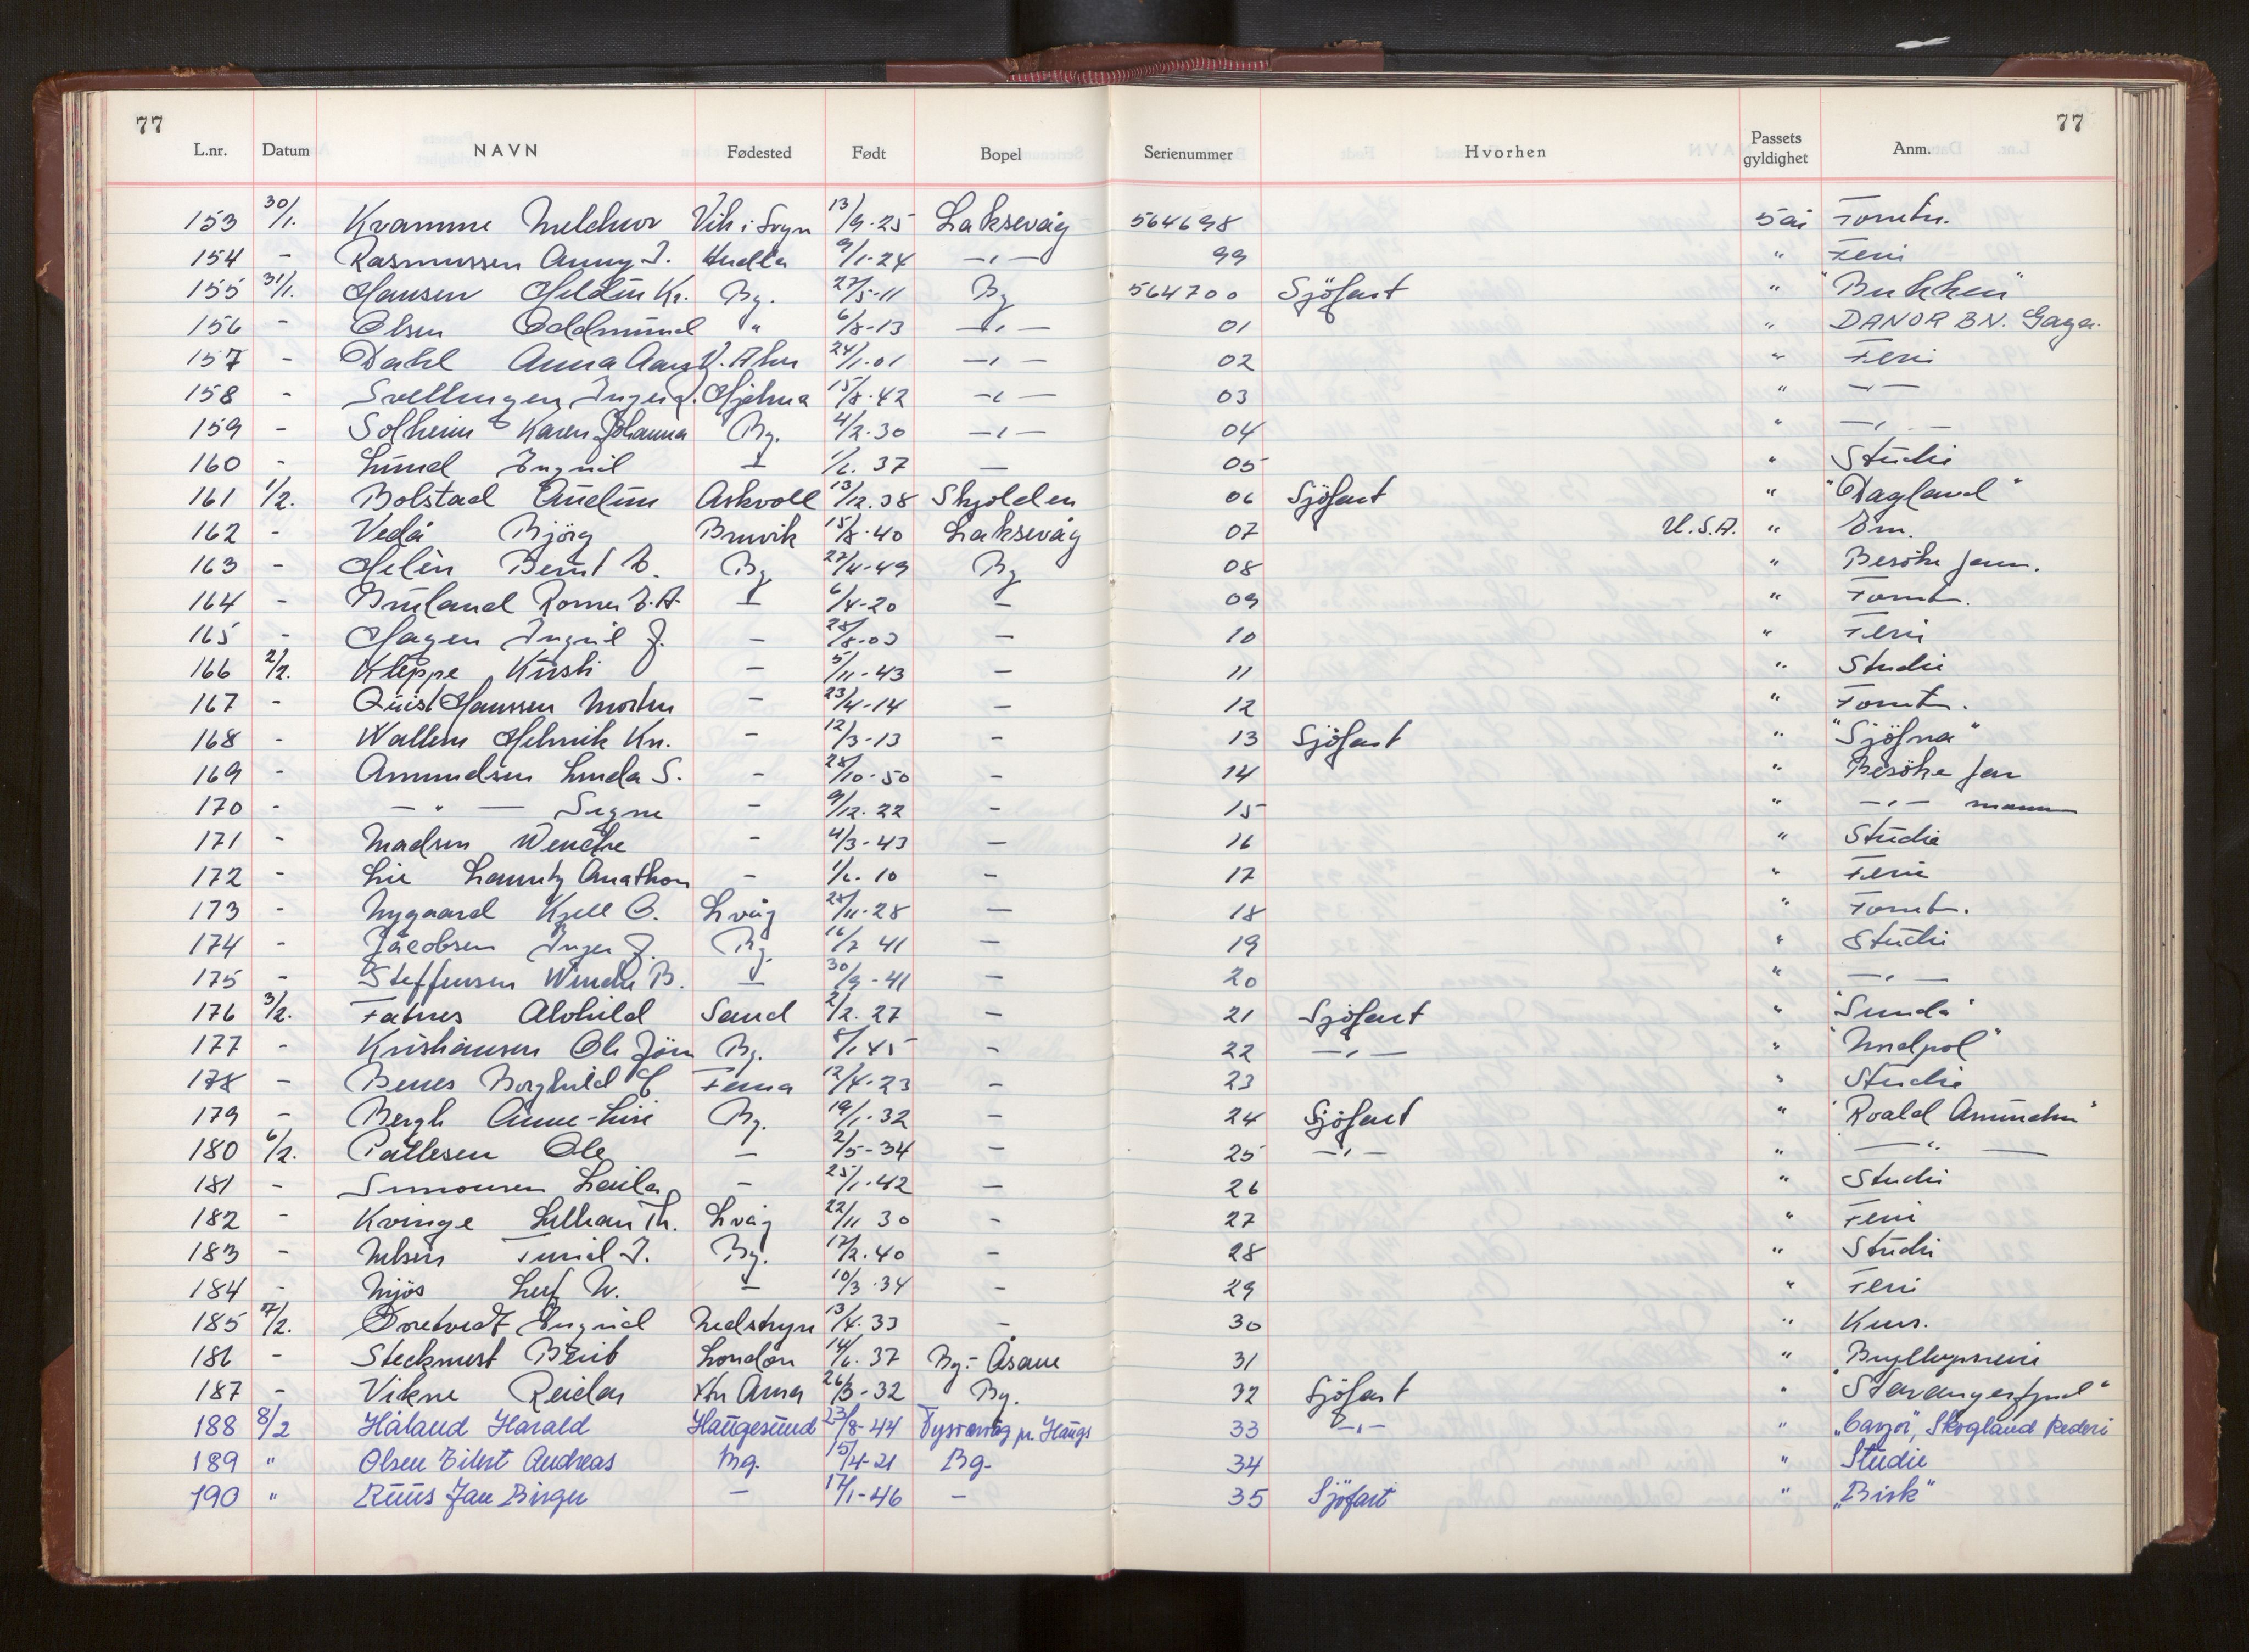 77 77
L.nr. Datum NAVN Fødested Født Bopel Serienummer Hvorhen Passets gyldighet Anm.
153 30/1. Kvamme Melchior Vik i Sogn 13/9-25 Laksevåg 564698 5 år Forretn.
154 - Rasmussen Anny J. Herdla 9/1-24 -"- 99 " Ferie
155 31/1. Hansen Kr. Bg. 27/5-11 Bg 564700 Sjöfart " "Bukken"
156 - Olsen Oddmund " 6/8-13 -"- 01 " DANOR BN.
157 - Dahl Anna 24/1-01 -"- 02 " Ferie
158 - Svellingen 15/8-42 -"- 03 " -"-
159 - Solheim Karen Johanna Bg. 4/2-30 -"- 04 " -"-
160 - Lund Ingrid - 1/6. 37 - 05 " Studie
161 1/2. Bolstad Audun Askvoll 13/12.38 Skjolden 06 Sjöfart " "Dagland"
162 - Vedå Björg Bruvik 15/8-40 Laksevåg 07 U.S.A. " Em.
163 - Helén Bernt Bg 27/4-49 Bg 08 " Besöke fam.
164 - - 6/4-20 - 09 " Forretn.
165 - Hagen Ingrid J. - 28/8-03 - 10 " Ferie
166 2/2. Kleppe Kirsti - 5/11-43 - 11 " Studie
167 - Quist Hanssen Morten - 23/4-14 - 12 " Forretn.
168 - Wallem Kr. - 12/3-13 - 13 Sjöfart " "Sjöfna"
169 - Amundsen Linda S. - 28/10-50 - 14 " Besöke far
170 - -"- Signe - 9/12.22 - 15 " -"- mann
171 - Madsen Wenche - 4/3-43 - 16 " Studie
172 - Lie Lauritz - 1/6.10 - 17 " Ferie
173 - Nygaard Kjell O. Lvåg 28/11-28 - 18 " Forretn.
174 - Jacobsen Inger J. Bg. 16/7 41 - 19 " Studie
175 - Steffensen Wenche B. - 30/9-41 - 20 " -"-
176 3/2. Fatnes Alvhild Sand 2/2.27 - 21 Sjöfart " "Sunda"
177 - Kristiansen Ole Jörn Bg. 8/1 45 - 22 -"- " "Nordpol"
178 - Benes Borghild Fema 12/4-23 - 23 " Studie
179 - Bergh Anne-Lise Bg. 19/1.32 - 24 Sjöfart " "Roald Amundsen"
180 6/2. Pallesen Ole - 2/5-34 - 25 -"- " -"-
181 - Simonsen Laila - 25/1.42 - 26 " Studie
182 - Kvinge Lillian Th. Lvåg 22/11 30 - 27 " Ferie
183 - Nilsen Turid J. Bg. 17/2.40 - 28 " Studie
184 - Mjös Leif N. - 10/3.34 - 29 " Ferie
185 7/2. Ingrid Nedstryn 13/4.33 - 30 " Kurs.
186 - Steckmest Berit London 14/6.37 Bg.-Åsane 31 " Bryllupsreise
187 - Vikne Reidar Ytr Arna 26/3-32 Bg. 32 Sjöfart " "Stavangerfjord"
188 8/2 Håland Harald Haugesund 23/8-44 Tysværvåg pr. Haugs 33 -"- " Skogland Rederi
189 " Olsen Eilert Andreas Bg. 15/4-21 Bg. 34 " Studie
190 " Ruus Jan Birger - 17/1-46 - 35 Sjöfart " "Bisk"